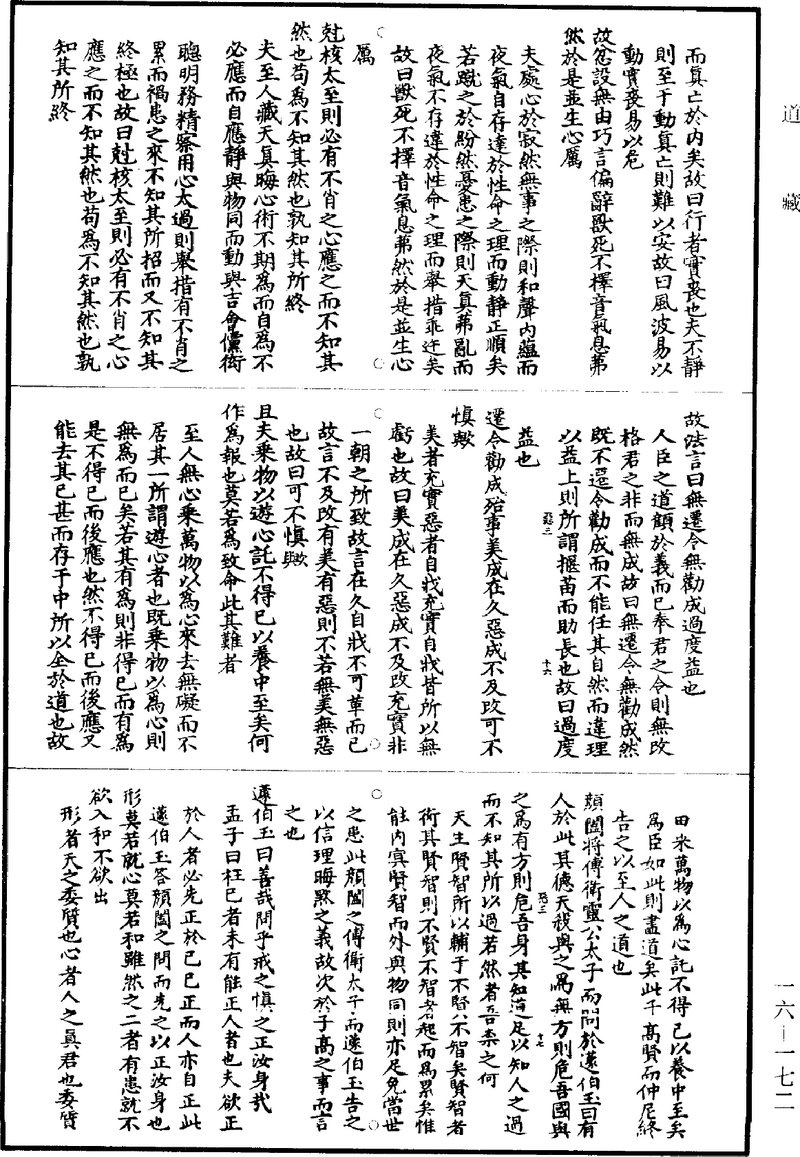 道藏
而真亡於內矣故曰行者實喪也夫不靜
則至于動真亡則難以安故曰風波易以
動實喪易以危
故忿設無由巧言偏辭獸死不擇音氣息茀
然於是並生心厲
夫處心於寂然無事之際則和聲內蘊而
夜氣自存達於性命之理而動靜正順矣
若蹴之於紛然憂患之際則天真茀亂而
夜氣不存違於性命之理而舉措乖迕矣
故曰獸死不擇音氣息茀然於是並生心
厲
尅核太至則必有不肖之心應之而不知其
然也苟為不知其然也孰知其所終
夫至人藏天真晦心術不期為而自為不
必應而自應靜與物同而動與吉會儻衒
聰明務精察用心太過則舉措有不肖之
累而禍患之來不知其所招而又不知其
終極也故曰尅核太至則必有不肖之心
應之而不知其然也苟為不知其然也孰
知其所終
故法言曰無遷令無勸成過度益也
人臣之道顧於義而已奉君之令則無改
格君之非而無成故曰無遷令無勸成然
既不遷令勸成而不能任其自然而違理
以益上則所謂揠苗而助長也故曰過度
益也
遷令勸成殆事美成在久惡成不及改可不
慎歟
美者充實惡者自戕充實自戕皆所以無
虧也故曰美成在久惡成不及改充實非
一朝之所致故言在久自戕不可革而已
故言不及改有美有惡則不若無美無惡
也故曰可不慎歟
且夫乘物以遊心託不得已以養中至矣何
作為報也莫若為致命此其難者
至人無心乘萬物以為心來去無礙而不
居其一所謂遊心者也既乘物以為心則
無為而已矣若其有為則非得已而有為
是不得已而後應也然不得已而後應又
能去其已甚而存于中所以全於道也故
曰乘萬物以為心託不得已以養中至矣
為臣如此則盡道矣此子高賢而仲尼終
告之以至人之道也
顏闔將傅衛靈公太子而問於蘧伯玉曰有
人於此其德天殺與之為無方則危吾國與
之為有方則危吾身其知適足以知人之過
而不知其所以過若然者吾奈之何
天生賢智所以輔于不賢不智矣賢智者
衒其賢智則不賢不智者起而為累矣惟
能內寘賢智而外與物同則亦足免當世
之患此顏闔之傅衛太子而蘧伯玉告之
以信理晦黙之義故次於子高之事而言
之也
蘧伯玉曰善哉問乎戒之慎之正汝身哉
孟子曰枉己者未有能正人者也夫欲正
於人者必先正於己己正而人亦自正此
蘧伯玉答顏闔之問而先之以正汝身也
形莫若就心莫若和雖然之二者有患就不
欲入和不欲出
形者天之委質也心者人之真君也委質
一六—一七二